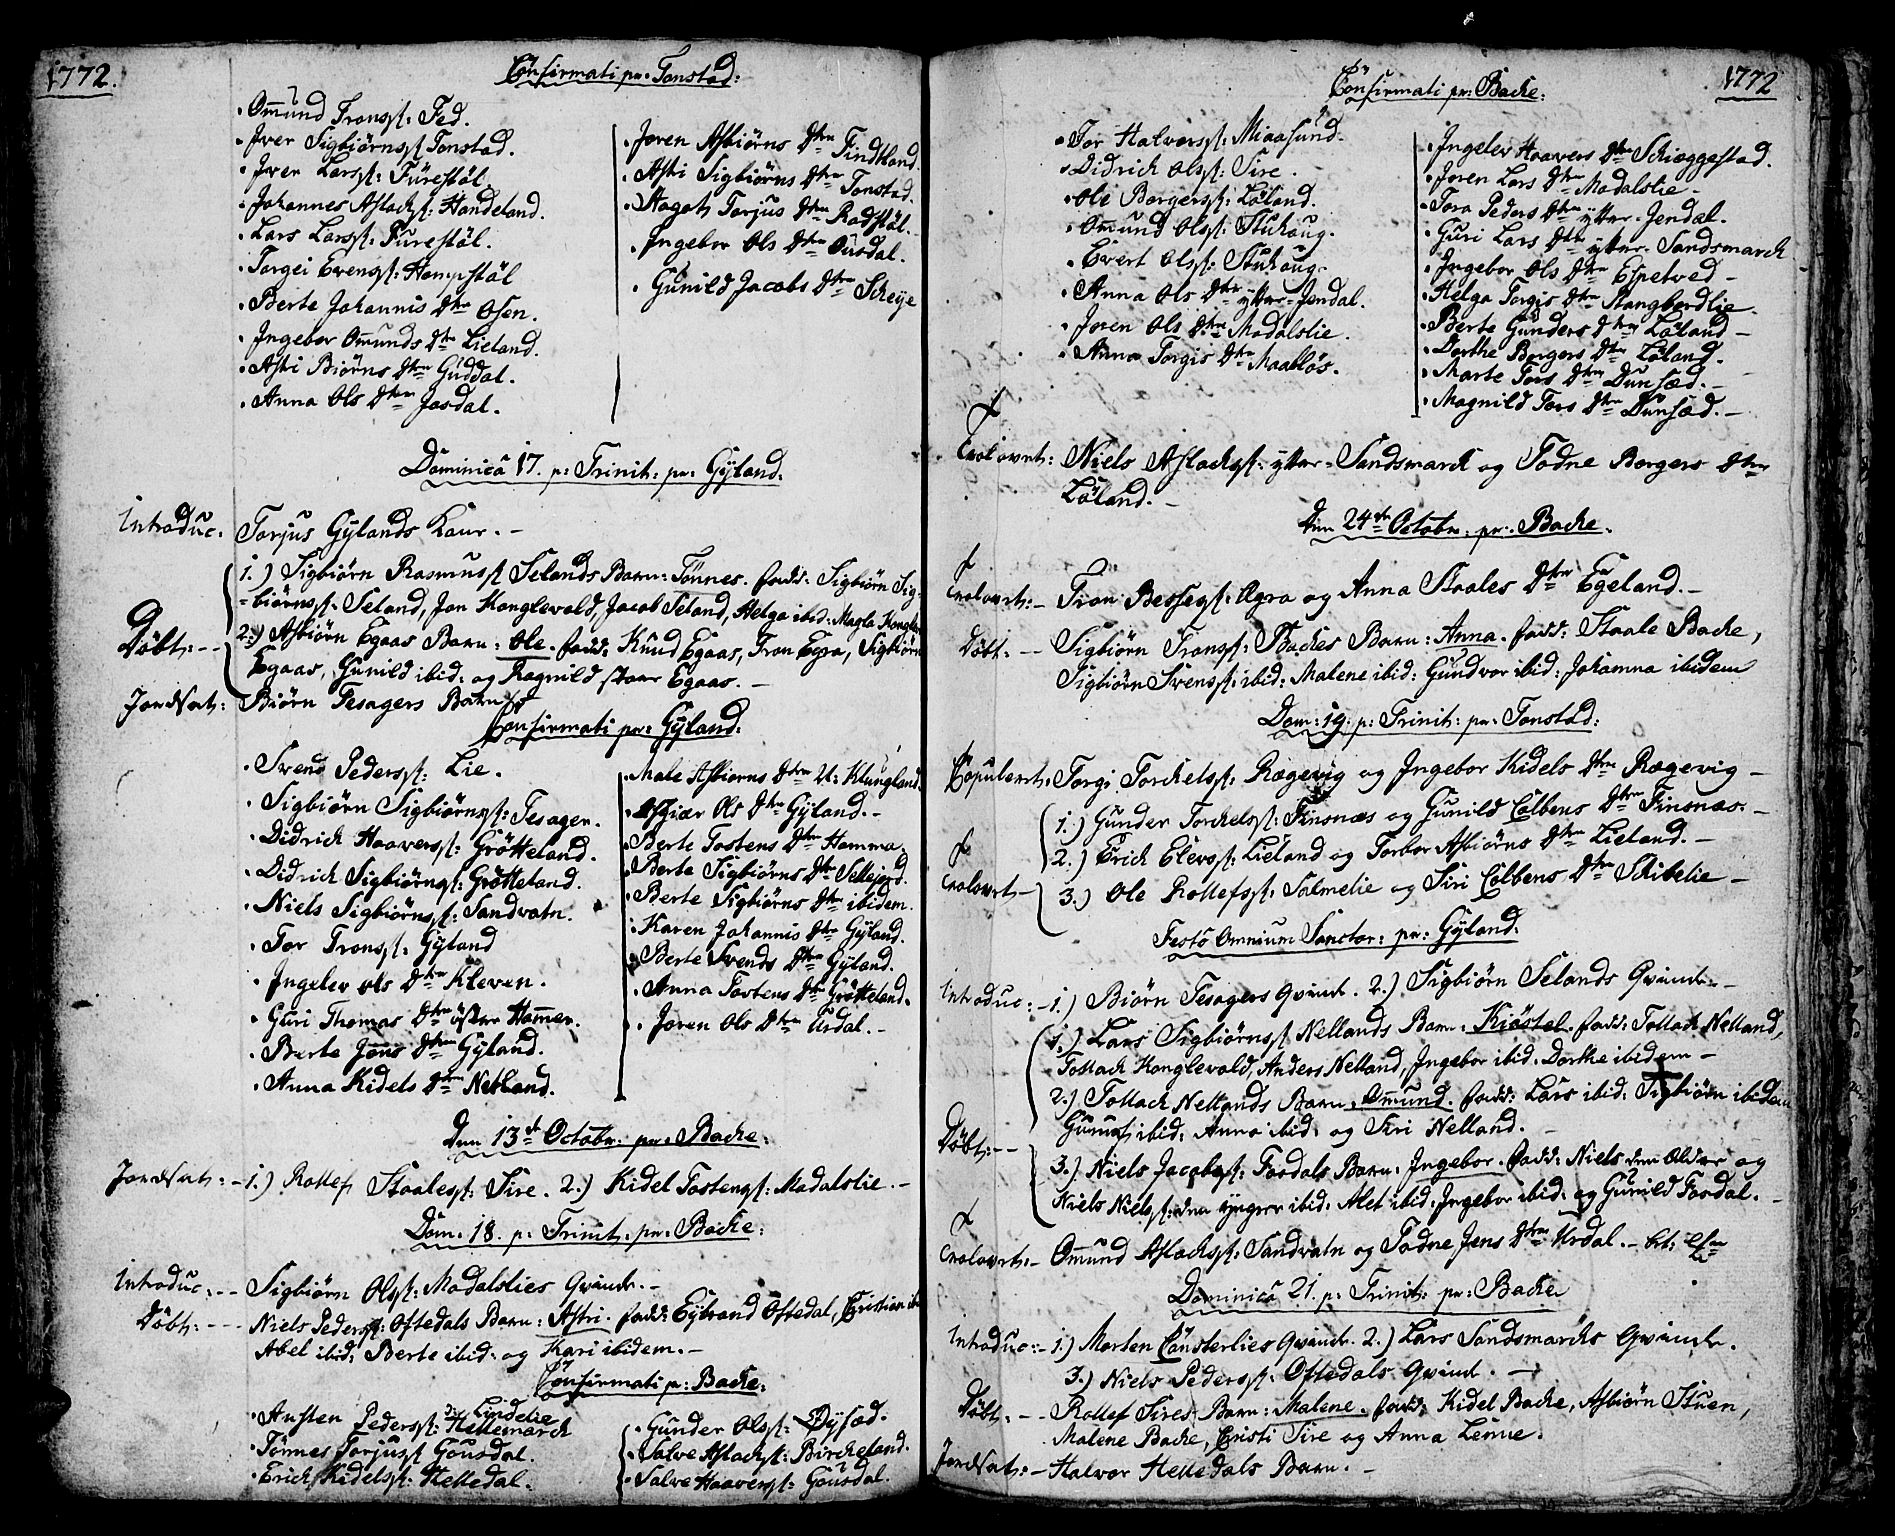 1772.
Confirmati pr: Tonstad:
Omund Tronss: Fed.
Iver Sigbiørnss: Tonstad.
Iver Larss: Furestøl.
Johannes Aslachss: Handeland.
Lars Larss: Furestøl.
Torgei Evenss: Hompstøl
Berte Johannis Dtr Osen.
Ingebor Omunds Dtr Lieland.
Aski Biørns Dtr Guddal.
Anna Ols Dtr Josdal.
Joren Asbiørns Dtr Findtland
Aski Sigbiørns Dtr Tonstad.
Aagot Torjus Dtr Rodstøl.
Ingebor Ols Dtr Ousdal.
Gunild Jacobs Dtr Scheye
Dominica 17. p: Trinit: pr: Gyland:
Introduc: Torjus Gylands Konr. -
1.) Sigbiørn Rasmuss Selands Barn: Tønnes. fadd: Sigbiørn Sig-
biørnss: Seland, Jon Konglevold, Jacob Seland, Helga ibid: Magla Konglev
Døbt: -- 2.) Asbiørn Egaas Barn: Ole. fadd: Knud Egaas, Tron Egra, Sigbiørn
Egaas, Gunild ibid: og Ragnild store Egaas. -
Jordsat: Biørn Tesagers Barn
Confirmati pr: Gyland:
Svend Pederss: Lie.
Sigbiørn Sigbiørnss: Tesager.
Didrich Haaverss: Grøtteland.
Didrich Sigbiørnss: Grøtteland.
Niels Sigbiørnss: Sandvatn.
Tor Tronss: Gyland
Ingelev Ols Dtr Kleven.
Guri Thomas Dtr øster Hamer.
Berte Jens Dtr Gyland.
Anna Kidels Dtr Netland.
Male Asbiørns Dtr U: Klungland.
Asgiær Ols Dtr Gyland. -
Berte Tostens Dtr Homma.
Berte Sigbiørns Dtr Sellejord.
Berte Sigbiørns Dtr ibidem.
Karen Johannis Dtr Gyland.
Berte Svends Dtr Gyland.
Anna Tostens Dtr Grøtteland.
Joren Ols Dtr Urdal. -
Den 13de Octobr: pr: Backe:
Jordsat: - 1.) Rollef Staaless: Sire. 2.) Kidel Tostenss: Modalslie. -
Dom: 18. p: Trinit: pr: Backe:
Introduc: -- Sigbiørn Olss: Modalslies Qvinde. -
Døbt: --- Niels Pederss: Oftedals Barn: Astri. fadd: Eybrand Oftedal, Cristian ib
Abel ibid: Berte ibid: og Kari ibidem. -
Confirmati p: Backe:
Austen Pederss: Lindelie Hellemarck
Tønnes Torjuss Gousdal.
Erich Kidelss: Helledal.
Gunder Olss: Øysæd.
Salve Aslachss: Bircheland.
Salve Haaverss: Gousdal.
Confirmati pr: Backe:
1772
Tor Halvorss: Miaasund.
Didrich Olss: Sire.
Ole Borgerss: Løland.
Omund Olss: Stuhaug.
Evert Olss: Stuhaug.
Anna Ols Dtr ytter-Jendal.
Joren Ols Dtr Modalslie.
Anna Torgis Dtr Maabløs.
Ingelev Haavers Dtr Schieggestad.
Joren Lars Dtr Modalslie -
Tora Peders Dtr ytter-Jendal.
Guri Lars Dtr ytter-Sandsmarck
Ingebor Ols Dtr Espetved -
Helga Torgis Dtr Stangbordlie.
Berte Gunders Dtr Løland -
Dorthe Borgers Dtr Løland.
Marte Tors Dtr Dunsæd. -
Magnild Tors Dtr Dunsæd. -
Trolovet: Niels Aslachss: ytter-Sandsmarck og Todne Borgers Dtr
Løland. -
Den 24de Octobr: pr: Backe.
Trolovet: - Tron Bessess: Øgra og Anna Staales Dtr Egeland. -
Døbt: -- Sigbiørn Tronss: Backes Barn: Anna. fadd: Staale Backe,
Sigbiørn Svenss: ibid: Malene ibid: Gundvor ibid: Johanna ibidem
Dom: 19. p: Trinit: pr: Tonstad:
Copuleret: Torgi Torckelss: Rægevig og Ingebor Kidels Dtr Rægevig -
1.) Gunder Torckelss: Finsnæs og Gunild Colbens Dtr Finsnæs. -
2.) Erich Elevss: Lieland og Torbor Asbiørns Dtr Lieland. -
Trolovet - 3.) Ole Rollefss: Salmelie og Siri Colbens Dtr Skibelie -
Festo Omnium Sanctor: pr: Gyland.
Introduc: - 1.) Biørn Tesagers Qvinde. 2.) Sigbiørn Selands Qvinde. -
1.) Lars Sigbiørnss Nellands Barn: Kiøstel. fadd: Tollach Nelland,
Tollach Konglevold, Anders Nelland, Ingebor ibid: Dorthe ibidem -
2.) Tollach Nellands Barn: Omund. fadd: Lars ibid: Sigbiørn ibidem
Gunild ibid: Anna ibid: og Siri Nelland. -
Døbt: -- 3.) Niels Jacobss: Fosdals Barn: Ingebor. fadd: Niels den Ældre og
Niels Nielss: den yngre ibid: Alet ibid: Ingebor ibid: og Gunild Fosdal. -
Trolovet: - Omund Aslachss: Sandvatn og Todne Jens Dtr Urdal. -
Dominica 21. p: Trinit: pr: Backe
Introduc: - 1.) Morten Consterlies Qvinde. 2.) Lars Sandsmarcks Qvinde.
3.) Niels Pederss: Oftedals Qvinde. -
Døbt: -- Rollef Sires Barn: Malene. fadd: Kidel Backe, Asbiørn Stuen,
Malene Backe, Cristi Sire og Anna Lenne.
Jordsat: - Halvor Helledals Barn. -